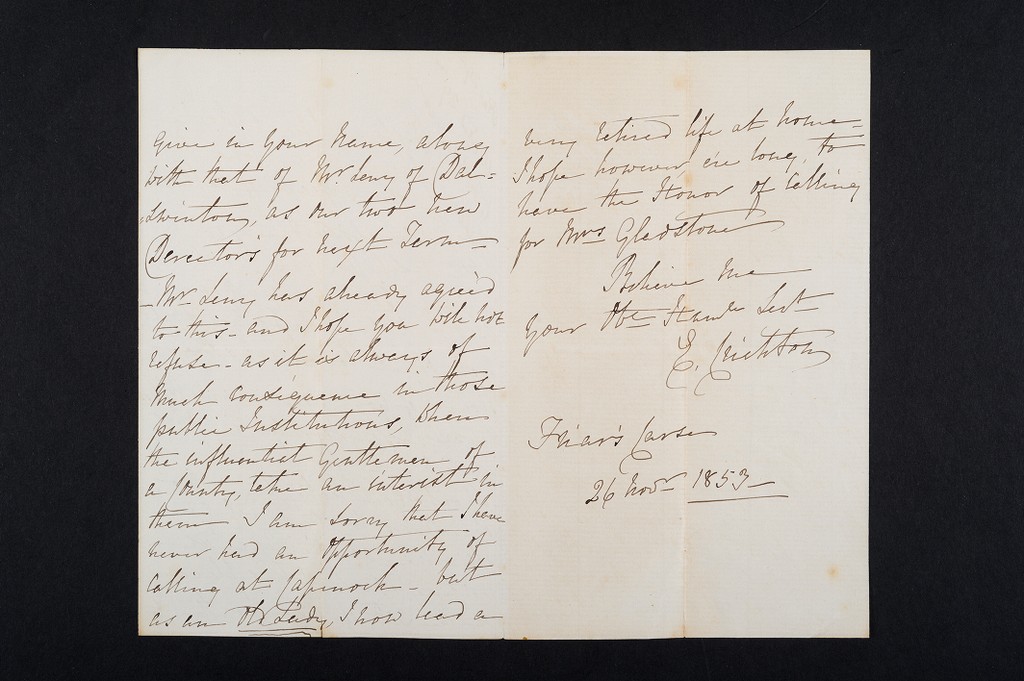 Give in your Name, along
with that of Mr. Leny of Dal=
=swinton, as our two new
Derectors for next Term—
— Mr Leny has already agreed
to this - and I hope you will not
refuse - as it is always of
Much consequence in those
public Institutions, when
the influential Gentlemen of
a County, take an interest in
them I am sorry that I have
never had an opportunity of
Calling at Capenoch - but
as an Old Lady, I now lead a
very retired life at home—
I hope however, e're long, to
have the Honor of Calling
for Mrs Gladstone
Believe Me
Your Obt Humle Sert
E. Crichton
Friar's Carse
26 Novr 1853—